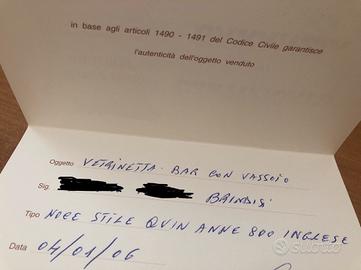 in base agli articoli 1490 - 1491 del Codice Civile garantisce
l'autenticità dell'oggetto venduto
Oggetto VETRINETTA - BAR CON VASSOIO
Sig. BRINDISI
Tipo NOCE STILE QVIN ANNE 800 INGLESE
Data 04/01/06
subito